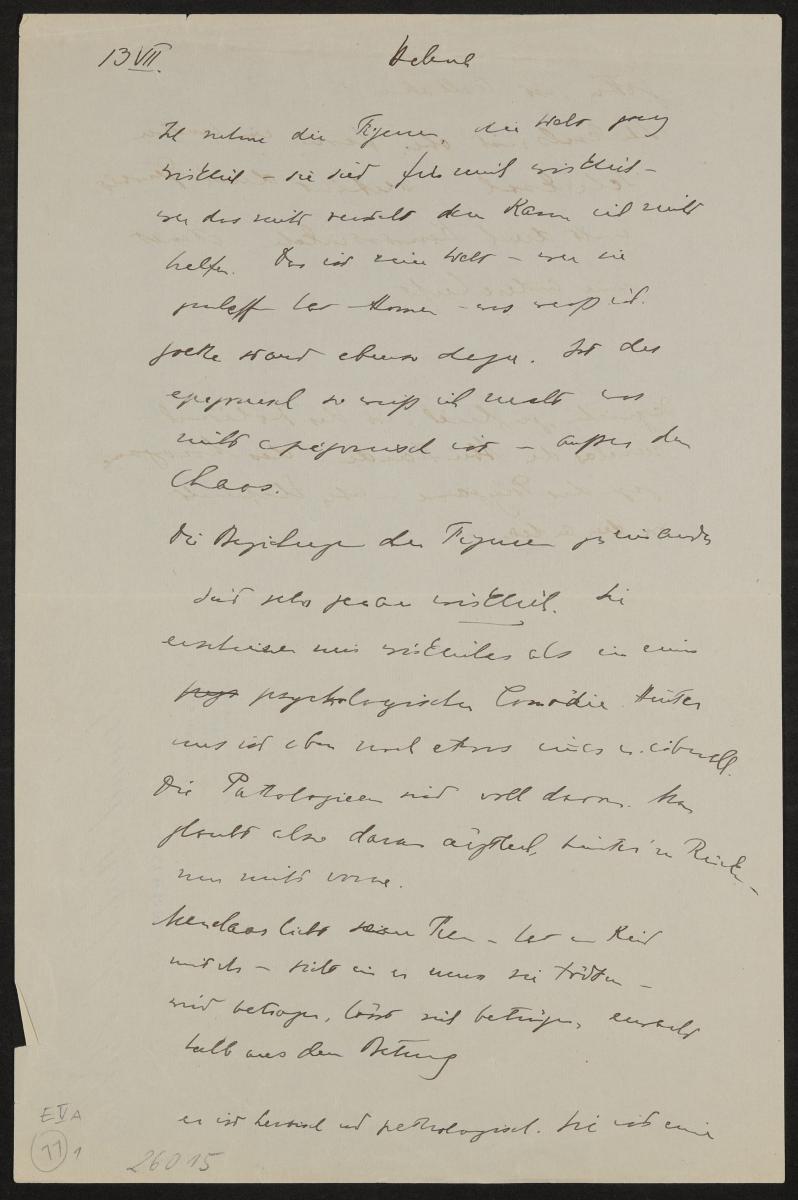 13 VII. Helena
Ich nehme die Figuren, die Welt ganz
wirklich – sie sind für mich wirklich –
wer das nicht versteht dem kann ich nicht
helfen. Das ist eine Welt – wer sie
hat Homer – was weiß ich.
Goethe stand ebenso dazu. Ist das
so weiß ich nicht was
nicht ist – ausser dem
Chaos.
Die Beziehungen der Figuren zu einander
sind sehr genau wirklich. Sie
erscheinen mir wirklicher als in einer
psychologischen Comödie. Hinter
uns ist eben noch etwas u. überall.
Die Pathologieen sind voll davon. Man
glaubt also daran ärztlich, hinten im Rücken
nur nicht vorne.
Menelaos liebt seine Frau – hat ein Kind
mit ihr – sieht ein er muss sie tödten –
wird betrogen, lässt sich betrügen, erwacht
halb aus dem Betrug
er ist heroisch und pathologisch. Sie ist eine
E V A
77 1
26015